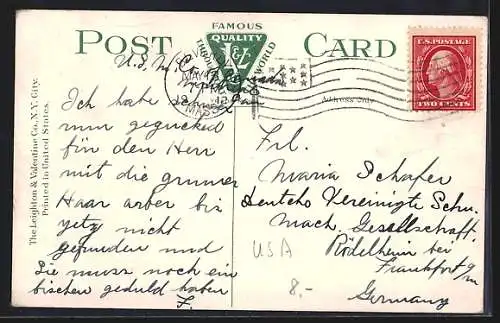 FAMOUS
QUALITY
THROUGHOUT
WORLD
POST CARD
U.S. POSTAGE
TWO CENTS
MASS
Address Only
The Leighton & Valentine Co., N.Y. City.
Printed in United States.
Ich habe
nun gegucked
für den Herr
mit die gruner
Haar arber bis
yetz nicht
gefunden und
Sie muss noch ein
bischen geduld haben
F.
Frl.
Maria Schafer
Deutche Vereinigte Schu.
Mach. Gesellschaft.
Rödelheim bei
Frankfort a/m
Germany
USA
8.-